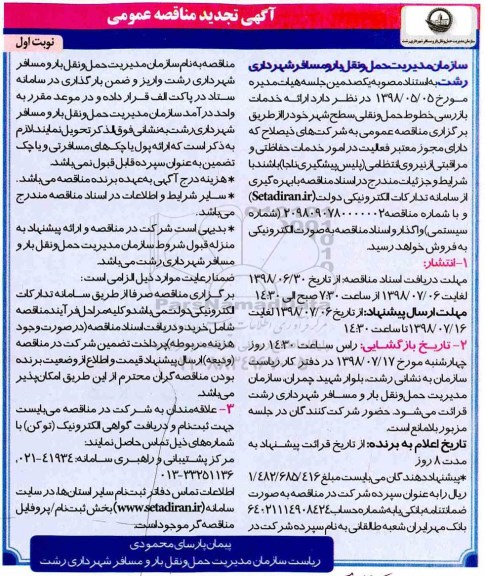 آگهی تجدید مناقصه عمومی
نوبت اول
سازمان مدیریت حمل و نقل بار و مسافر شهرداری
سازمان مدیریت حمل و نقل بار و مسافر شهرداری
رشت به استناد مصوبه یکصدمین جلسه هیات مدیره
مورخ ۱۳۹۸/۰۵/۰۵ در نظر دارد ارائه خدمات
بازرسی خطوط حمل و نقلی سطح شهر خود را از طریق
برگزاری مناقصه عمومی به شرکت های ذیصلاح که
دارای مجوز معتبر فعالیت در امور خدمات حفاظتی و
مراقبتی از نیروی انتظامی (پلیس پیشگیری ناجا) باشند با
شرایط و جزئیات مندرج در اسناد مناقصه با بهره گیری
از سامانه تدارکات الکترونیکی دولت (Setadiran.ir)
و با شماره مناقصه ۲۰۹۸۰۹۰۷۸۰۰۰۰۰۰۲ (شماره
سیستمی) واگذار و اسناد مناقصه به صورت الکترونیکی
به فروش خواهد رسید.
۱- انتشار:
مهلت دریافت اسناد مناقصه: از تاریخ ۱۳۹۸/۰۶/۳۰
لغایت ۱۳۹۸/۰۷/۰۶ از ساعت ۷:۳۰ صبح الی ۱۴:۳۰
مهلت ارسال پیشنهاد: از تاریخ ۱۳۹۸/۰۷/۰۶ لغایت
۱۳۹۸/۰۷/۱۶ تا ساعت ۱۴:۳۰
۲- تاریخ بازگشایی: راس ساعت ۱۴:۳۰ روز
چهارشنبه مورخ ۱۳۹۸/۰۷/۱۷ در دفتر کار ریاست
سازمان به نشانی رشت، بلوار شهید چمران، سازمان
مدیریت حمل و نقل بار و مسافر شهرداری رشت
قرائت می شود. حضور شرکت کنندگان در جلسه
مزبور بلامانع است.
تاریخ اعلام به برنده: از تاریخ قرائت پیشنهاد به
مدت ۸ روز
*پیشنهاددهندگان می بایست مبلغ ۱/۴۸۳/۶۸۵/۴۱۶
ریال را به عنوان سپرده شرکت در مناقصه به صورت
ضمانتنامه بانکی یا به شماره حساب ۶۴۰۲۱۱۱۴۹۰۸۴۲۴
بانک مهر ایران شعبه طالقانی به نام سپرده شرکت در
مناقصه به نام سازمان مدیریت حمل و نقل بار و مسافر
شهرداری رشت واریز و ضمن بارگذاری در سامانه
ستاد در پاکت الف قرار داده و در موعد مقرر به
واحد درآمد سازمان مدیریت حمل و نقل بار و مسافر
شهرداری رشت به نشانی فوق الذکر تحویل نمایند. لازم
به ذکر است که ارائه پول یا چک های مسافرتی و یا چک
تضمین به عنوان سپرده قابل قبول نمی باشد.
*هزینه درج آگهی به عهده برنده مناقصه می باشد.
*سایر شرایط و اطلاعات در اسناد مناقصه مندرج
می باشد.
*بدیهی است شرکت در مناقصه و ارائه پیشنهاد به
منزله قبول شروط سازمان مدیریت حمل و نقل بار و
مسافر شهرداری رشت می باشد.
ضمنا رعایت موارد ذیل الزامی است:
برگزاری مناقصه صرفا از طریق سامانه تدارکات
الکترونیکی دولت می باشد و کلیه مراحل فرآیند مناقصه
شامل خرید و دریافت اسناد مناقصه (در صورت وجود
هزینه مربوطه) پرداخت تضمین شرکت در مناقصه
(ودیعه) ارسال پیشنهاد قیمت و اطلاع از وضعیت برنده
بودن مناقصه گران محترم از این طریق امکان پذیر
می باشد.
۳- علاقه مندان به شرکت در مناقصه می بایست
جهت ثبت نام و دریافت گواهی الکترونیک (توکن) با
شماره های ذیل تماس حاصل نمایند:
مرکز پشتیبانی و راهبری سامانه: ۴۱۹۳۴-۰۲۱،
۰۱۳-۳۳۲۵۱۱۳۶
اطلاعات تماس دفاتر ثبت نام سایر استان ها، در سایت
سامانه (www.setadiran.ir) بخش ثبت نام/پروفایل
مناقصه گر موجود است.
پیمان پارسای محمودی
ریاست سازمان مدیریت حمل و نقل بار و مسافر شهرداری رشت